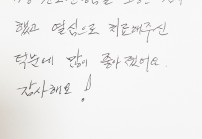 했고 열심으로 치료해주신
덕분에 많이 좋아졌어요
감사해요!